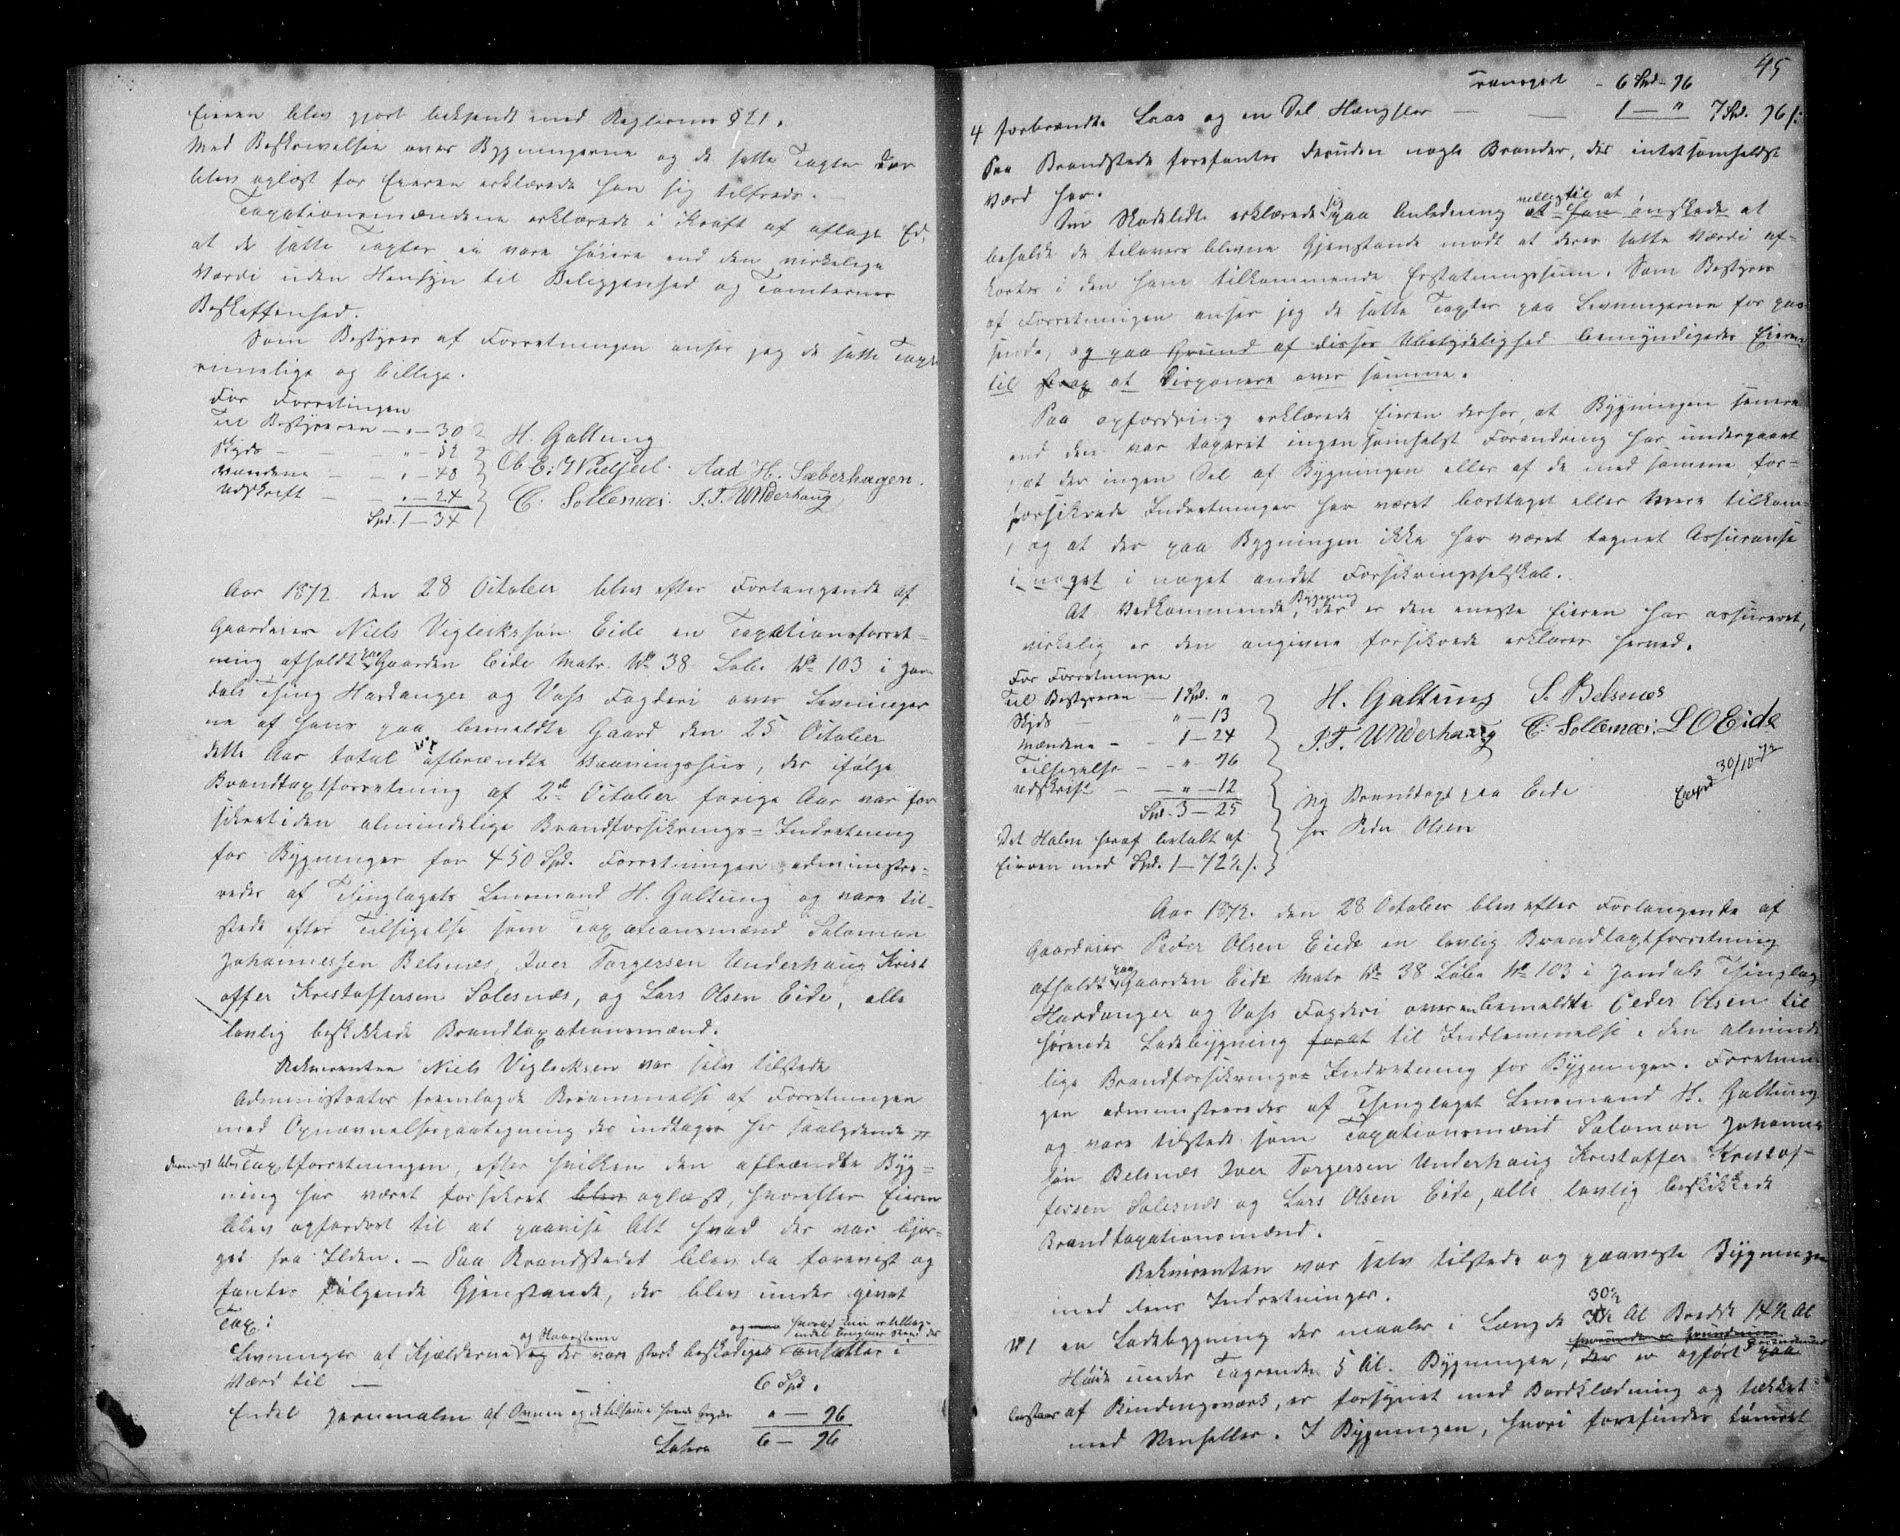 Eieren blev gjort bekjendt med Reglerne § 21.
Med Beskrivelsen over Bygningerne og de satte Taxter der
blev oplæst for Eieren erklærede han sig tilfreds.
Taxationsmændene erklærede i Kraft af aflagt Ed,
at de satte Taxter ei vare høiere end den virkelige
Værdi uden Hensyn til Beliggenhed og Tomternes
Beskaffenhed.
Som Bestyrer af Forretningen anser jeg de satte Taxter
rimelige og billige.
For Forretningen
Til Bestyreren — „ — 30
Skyds — „ — 52
Mændene — „ — 48
Udskrift — „ — 24
Spd. 1 — 34
H. Galtung
Aad H. Sæberhagen.
C. Sollesnæs. I. T. Underhaug
Aar 1872 den 28 October blev efter Forlangende af
Gaardeier Niels Viglecksøn Eide en Taxationsforret-
ning afholdt paa Gaarden Eide Matr. No 38 Løbe No 103 i Jon-
dals Thinglag Hardanger og Voss Fogderi over Levninger
ne af hans paa bemeldte Gaard den 25 October
dette Aar total afbrændte Vaaningshus, der ifølge
Brandtaxtforretning af 2de October forige Aar var for
sikret i den almindelige Brandforsikrings-Indretning
for Bygninger for 450 Spd. Forretningen administre-
redes af Thinglagets Lensmand H. Galtung og vare til-
stede efter Tilsigelse som Taxationsmænd Salomon
Johannessen Belsnæs, Iver Torgersen Underhaug Krist
offer Kristoffersen Solesnæs, og Lars Olsen Eide, alle
lovlig beskikkede Brandtaxationsmænd.
Rekvirenten Niels Viglecksen var selv tilstede
Administrator fremlagde Berammelse af Forretningen
med Opnævnelsespaategning der indtages her saalydende
Taxtforretningen, efter hvilken den afbrændte Byg-
ning har været forsikret blev oplæst, hvorefter Eieren
blev opfordret til at paavise Alt hvad der var bjer-
get fra Ilden. — Paa Brandstedet blev da forevist og
fantes følgende Gjenstande, der blev under givet
Tax:
Levninger af Kjælderne og Skorstene og der var stærk beskadiget ansættes i
Værd til — 6 Spd.
Endel Jernmalm af Ovnen og — „ — 96
Latera 6 — 96
45
Transport — 6 Spd — 96
4 forbrændte Laas og en Del Hængsler — 1 — „ 7 Spd. 96 /:
Paa Brandstedet forefantes desuden nogle Brander, der intetsomhelst
Værd har.
Den Skadelidte erklærede sig paa Anledning villig til at at han ønskede at
beholde de tilovers blevne Gjenstande modt at deres satte Værdi af-
kortes i den ham tilkommende Erstatningssum. Som Bestyrer
af Forretningen anser jeg de satte Taxter paa Levningerne for pas
sende, og paa Grund af disses Ubetydelighed bemyndigedes Eieren
til at disponere over samme.
Paa opfordring erklærede Eieren derhos, at Bygningen senere
end den var taxeret ingen somhelst Forandring har undergaaet
, at der ingen Del af Bygningen eller af de med samme for-
forsikrede Indretninger har været borttaget eller mere tilkom-
, og at der paa Bygningen ikke har været tegnet Assuranse
i noget i noget andet Forsikringsselskab.
At Vedkommende Bygning, der er den eneste Eieren har assureret,
virkelig er den angivne forsikrede erklæres herved.
For Forretningen
Til Bestyreren — 1 Spd. „
Skyds — „ — 13
Mændene — 1 — 24
Tilsigelse — „ — 96
Udskrift — „ — 12
Spd. 3 — 25
Det Halve heraf betalt af
Eieren med Spd. 1 — 72½ /.
H. Galtung S. Belsnæs
I. T. Underhaug C. Sollesnæs. L O Eide
Ny Brandtaxt paa Eide
hos Peder Olsen
Exped 30/10 72
Aar 1872. den 28 October blev efter Forlangende af
Gaardeier Peder Olsen Eide en lovlig Brandtaxtforretning
afholdt paa Gaarden Eide Matr No 38 Løbe No 103 i Jondals Thinglag
Hardanger og Voss Fogderi over en bemeldte Peder Olsen til
hørende Ladebygning forat til Indlemmelse i den alminde
lige Brandforsikrings-Indretning for Bygninger. Forretnin
gen administreredes af Thinglaget Lensmand H. Galtung
og vare tilstede som Taxationsmænd Salomon Johanne
søn Belsnæs Iver Torgersen Underhaug Kristoffer Kristof-
fersen Solesnæs og Lars Olsen Eide, alle lovlig beskikkede
Brandtaxationsmænd.
Rekvirenten var selv tilstede og paaviste Bygningen
med dens Indretninger.
No 1 en Ladebygning der maaler i Længde 30½ Al Bredde 14½ Al
Høide under Tagrenden 5 Al. Bygningen, der er opført paa
af Bindingsværk, er forsynet med Bordklædning og tækket
med Steenheller. I Bygningen, hvori forefindes tømret